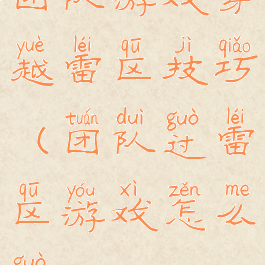 团队游戏穿
yuè léi qū jì qiǎo
越雷区技巧
tuán duì guò léi
（团队过雷
qū yóu xì zěn me
区游戏怎么
guò